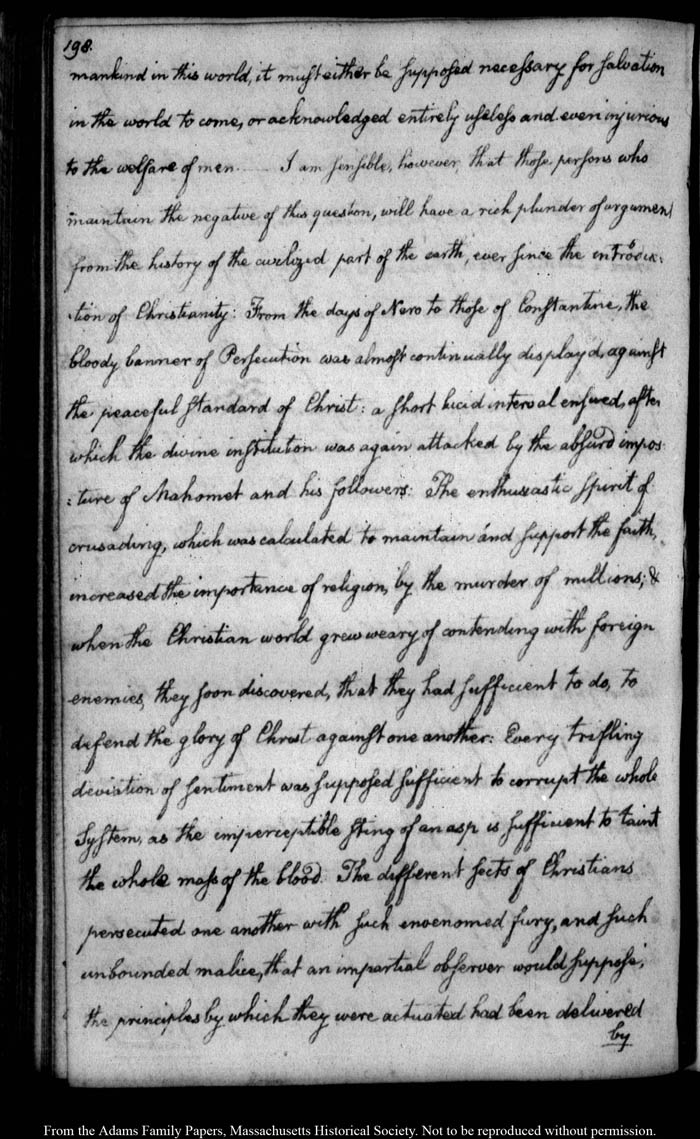 198.
mankind in this world, it must either be supposed necessary for salvation
in the world to come, or acknowledged entirely useless and even injurious
to the welfare of men. ..... I am sensible, however, that those persons who
maintain the negative of this question, will have a rich plunder of argument
from the history of the civilized part of the earth, ever since the introduc-
:tion of Christianity: From the days of Nero to those of Constantine, the
bloody banner of Persecution was almost continually display'd, against
the peaceful standard of Christ: a short lucid interval ensued, after
which the divine institution was again attacked by the absurd impos
:ture of Mahomet and his followers. The enthusiastic spirit of
crusading, which was calculated to maintain and support the faith,
increased the importance of religion, by the murder of millions; &
when the Christian world grew weary of contending with foreign
enemies, they soon discovered, that they had sufficient to do, to
defend the glory of Christ against one another: Every trifling
deviation of sentiment was supposed sufficient to corrupt the whole
System, as the imperceptible sting of an asp is sufficient to taint
the whole mass of the blood. The different sects of Christians
persecuted one another with such envenomed fury, and such
unbounded malice, that an impartial observer would suppose,
the principles by which they were actuated had been delivered
by
From the Adams Family Papers, Massachusetts Historical Society. Not to be reproduced without permission.